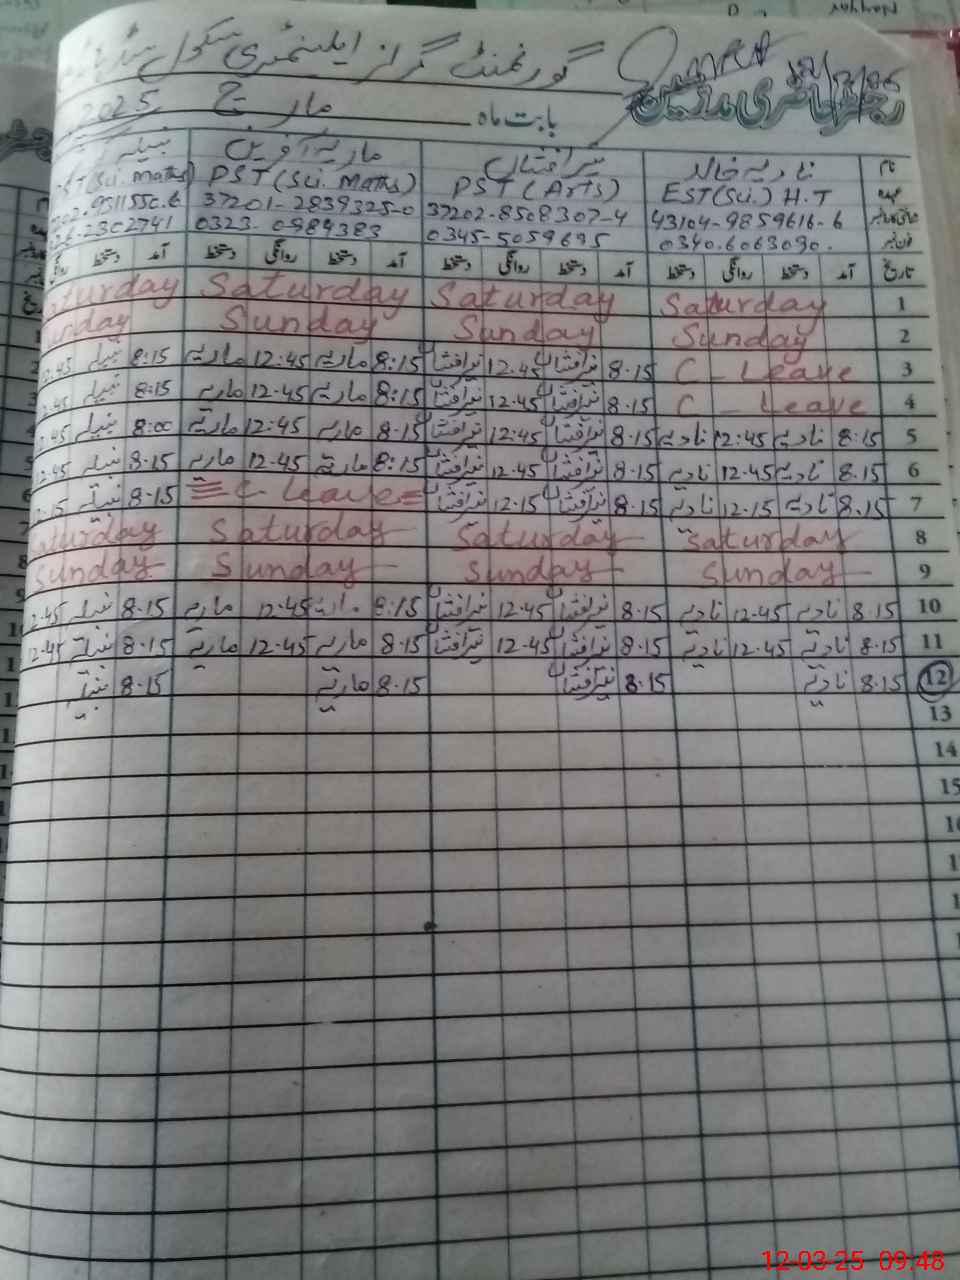 گورنمنٹ گرلز ایلیمنٹری سکول
رجسٹر حاضری مدرسین
بابت ماہ مارچ 2025
نام نادیہ خالد نیر افشاں ماریہ آفرین نبیلہ
عہدہ EST(Sci.) H.T PST (Arts) PST (Sci. Maths) ST(Sci. Maths)
43104-9859616-6 37202-8508307-4 37201-2839325-0
فون نمبر 0340.6063090. 0345-5059695 0323-0984383 2302741
تاریخ آمد دستخط روانگی دستخط آمد دستخط روانگی دستخط آمد دستخط روانگی دستخط آمد دستخط روانگی
1 Saturday Saturday Saturday aturday
2 Sunday Sunday Sunday unday
3 C - Leave 8.15 نیر افشاں 12.45 نیر افشاں 8:15 ماریہ 12:45 ماریہ 8:15 نبیلہ 2.45
4 C - Leave 8.15 نیر افشاں 12.45 نیر افشاں 8:15 ماریہ 12.45 ماریہ 8:15 نبیلہ 2.45
5 8:15 نادیہ 12:45 نادیہ 8.15 نیر افشاں 12:45 نیر افشاں 8.15 ماریہ 12:45 ماریہ 8:00 نبیلہ 2.45
6 8.15 نادیہ 12.45 نادیہ 8.15 نیر افشاں 12.45 نیر افشاں 8:15 ماریہ 12.45 ماریہ 8.15 نبیلہ 12.45
7 8.15 نادیہ 12.15 نادیہ 8.15 نیر افشاں 12.15 نیر افشاں C Leave 8.15 نبیلہ 2.15
8 Saturday Saturday Saturday aturday
9 Sunday Sunday Sunday Sunday
10 8.15 نادیہ 12.45 نادیہ 8.15 نیر افشاں 12.45 نیر افشاں 8:15 ماریہ 12.45 ماریہ 8.15 نبیلہ 12.45
11 8.15 نادیہ 12.45 نادیہ 8.15 نیر افشاں 12.45 نیر افشاں 8.15 ماریہ 12.45 ماریہ 8.15 نبیلہ 12.45
12 8.15 نادیہ 8.15 نیر افشاں 8.15 ماریہ 8.15 نبیلہ
13
14
15
16
12-03-25 09:48